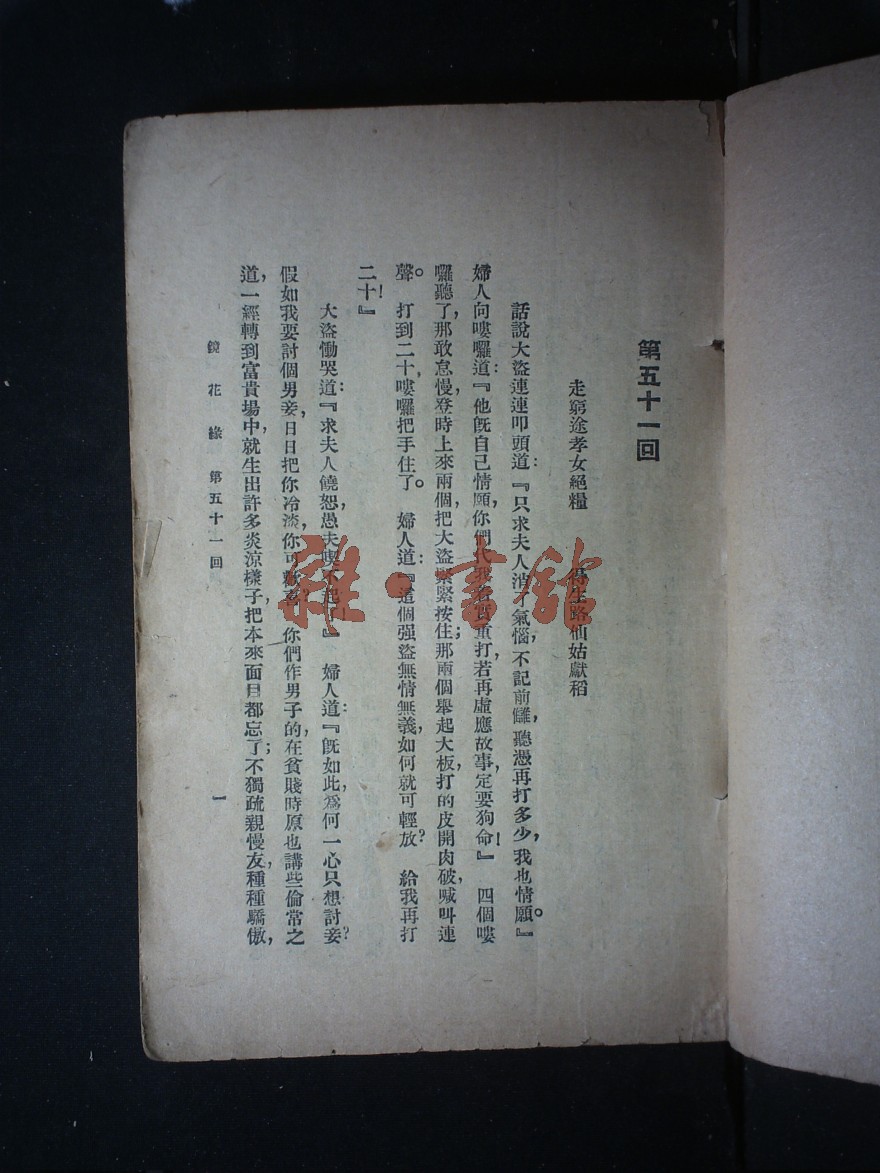 第五十一回
走窮途孝女絕糧　得生路仙姑獻稻
話說大盜連連叩頭道：『只求夫人消了氣惱，不記前讎，聽憑再打多少，我也情願。』
婦人向嘍囉道：『他旣自己情願，你們代我著實重打，若再虛應故事，定要狗命！』　四個嘍
囉聽了，那敢怠慢，登時上來兩個，把大盜緊緊按住；那兩個舉起大板，打的皮開肉破，喊叫連
聲。　打到二十，嘍囉把手住了。　婦人道：『這個强盜無情無義，如何就可輕放？　給我再打
二十！』
大盜慟哭道：『求夫人饒恕，愚夫喫不起了！』　婦人道：『旣如此，爲何一心只想討妾？
假如我要討個男妾，日日把你冷淡，你可歡喜？　你們作男子的，在貧賤時原也講些倫常之
道，一經轉到富貴場中，就生出許多炎涼樣子，把本來面目都忘了；不獨疏親慢友，種種驕傲，
鏡花緣　第五十一回　一
雜·書館